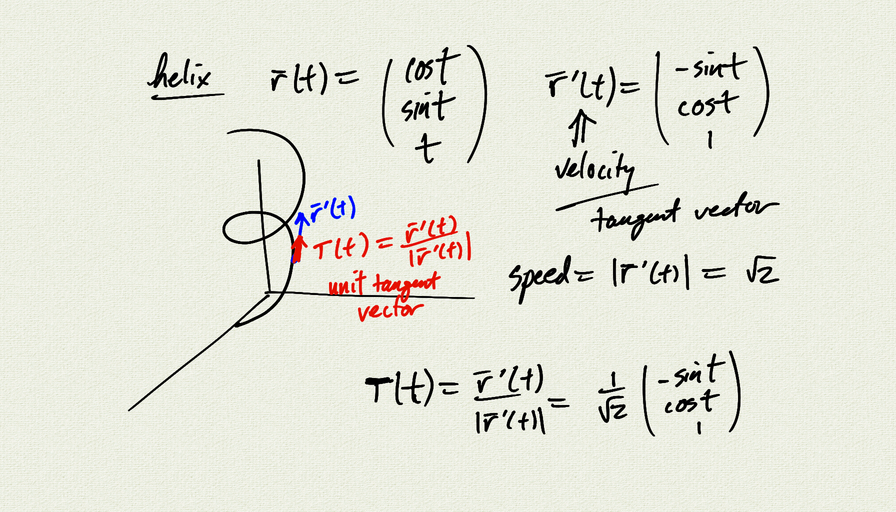 helix r̄(t) = (cost sint t) r̄'(t) = (-sint cost 1)
⇑
velocity
tangent vector
r̄'(t)
T(t) = r̄'(t) / |r̄'(t)|
unit tangent
vector
speed = |r̄'(t)| = √2
T(t) = r̄'(t) / |r̄'(t)| = 1/√2 (-sint cost 1)